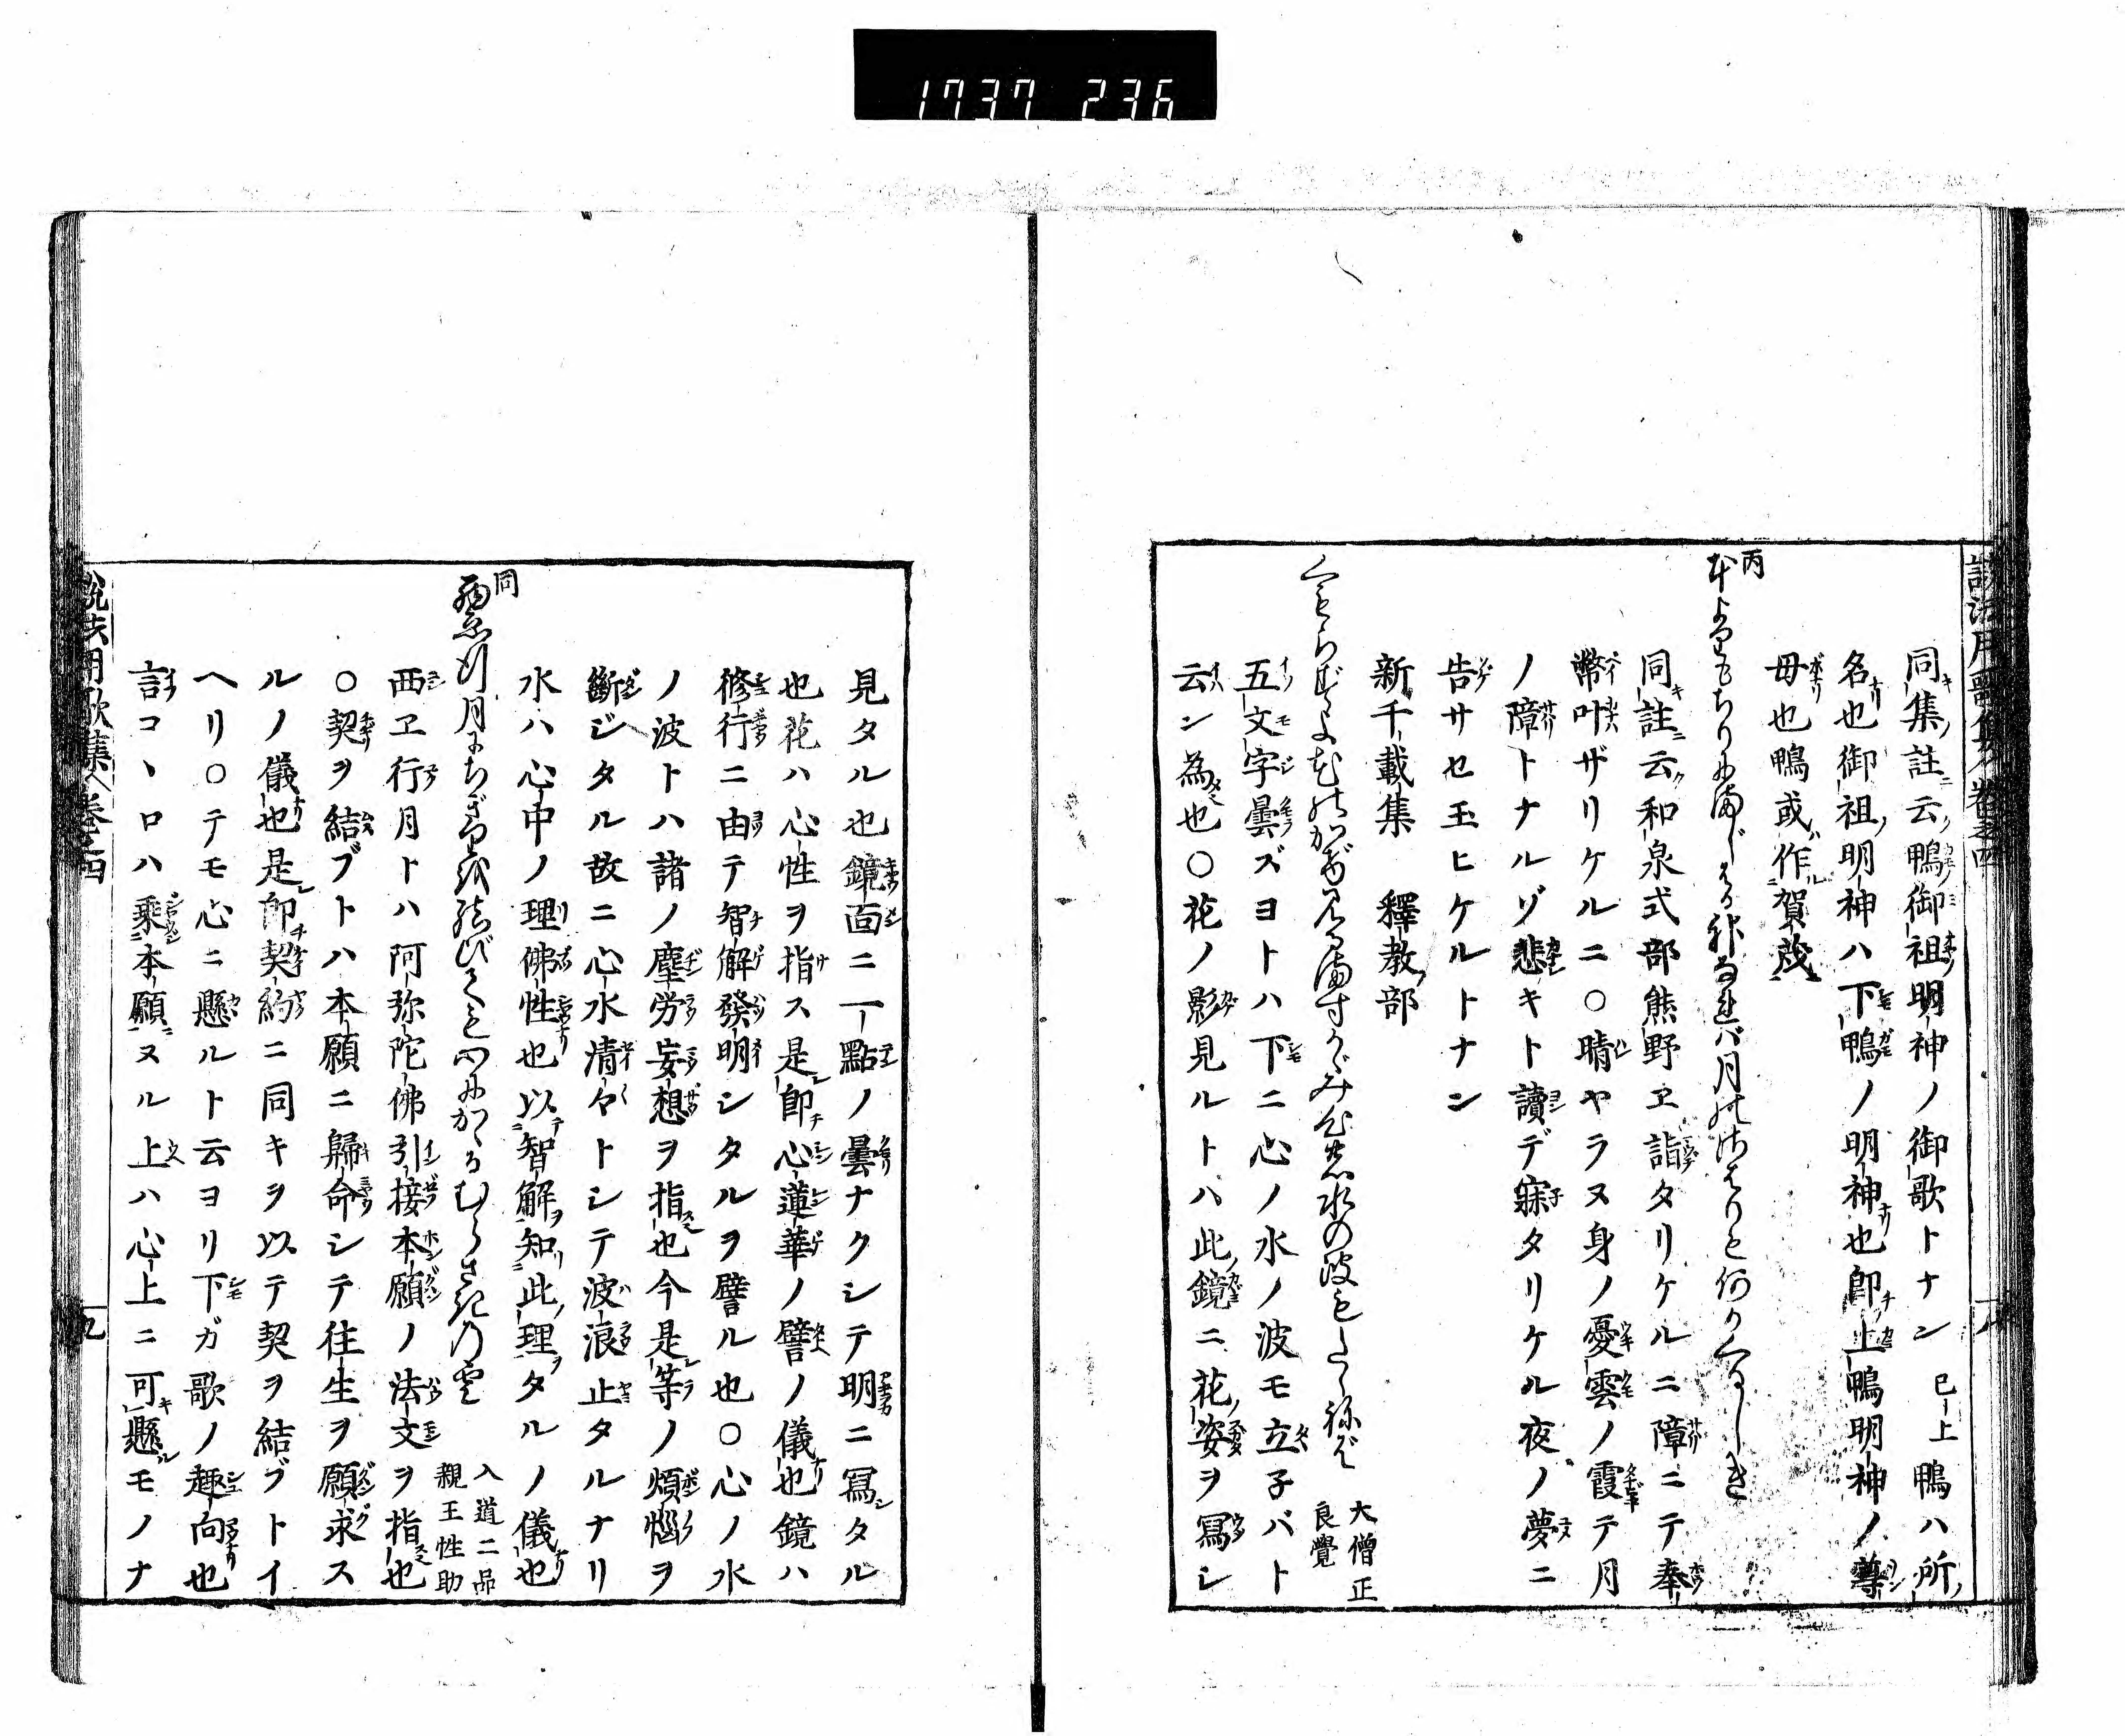 1737 236
説法用歌集 巻之四
同集註云鴨御祖明神ノ御歌トナン 已上 鴨ハ所ノ
名也御祖明神ハ下鴨ノ明神也即上鴨明神ノ尊
母也鴨或作賀茂
丙
もとよりもちりにまじはる神なれば月のさはりも何かくるしき
同註云和泉式部熊野ヱ詣タリケルニ障ニテ奉
幣叶ザリケルニ○晴ヤラヌ身ノ憂雲ノ霞テ月
ノ障トナルゾ悲キト讀デ寐タリケル夜ノ夢ニ
告サセ玉ヒケルトナン
新千載集 釋教部
くもらずよむねのかがみ 水の波もたたねば
大僧正
良覺
五文字曇ズヨトハ下ニ心ノ水ノ波モ立子バト
云ン為也○花ノ影見ルトハ此鏡ニ花ノ姿ヲ冩シ
八
見タル也鏡面ニ一點ノ曇ナクシテ明ニ冩タル
也花ハ心性ヲ指ス是即心蓮華ノ譬ノ儀也鏡ハ
修行ニ由テ智解發明シタルヲ譬ル也○心ノ水
ノ波トハ諸ノ塵労妄想ヲ指也今是等ノ煩惱ヲ
斷ジタル故ニ心水清々トシテ波浪止タルナリ
水ハ心中ノ理佛性也以智解知此理タルノ儀也
同
月にちぎりを結びても心にかかるむらさきの雲
入道二品
親王性助
西ヱ行月トハ阿弥陀佛引接本願ノ法文ヲ指也
○契ヲ結ブトハ本願ニ歸命シテ往生ヲ願求ス
ルノ儀也是即契約ニ同キヲ以テ契ヲ結ブトイ
ヘリ○テモ心ニ懸ルト云ヨリ下ガ歌ノ趣向也
言コヽロハ乘本願ヌル上ハ心上ニ可懸モノナ
説法用歌集 巻之四
九